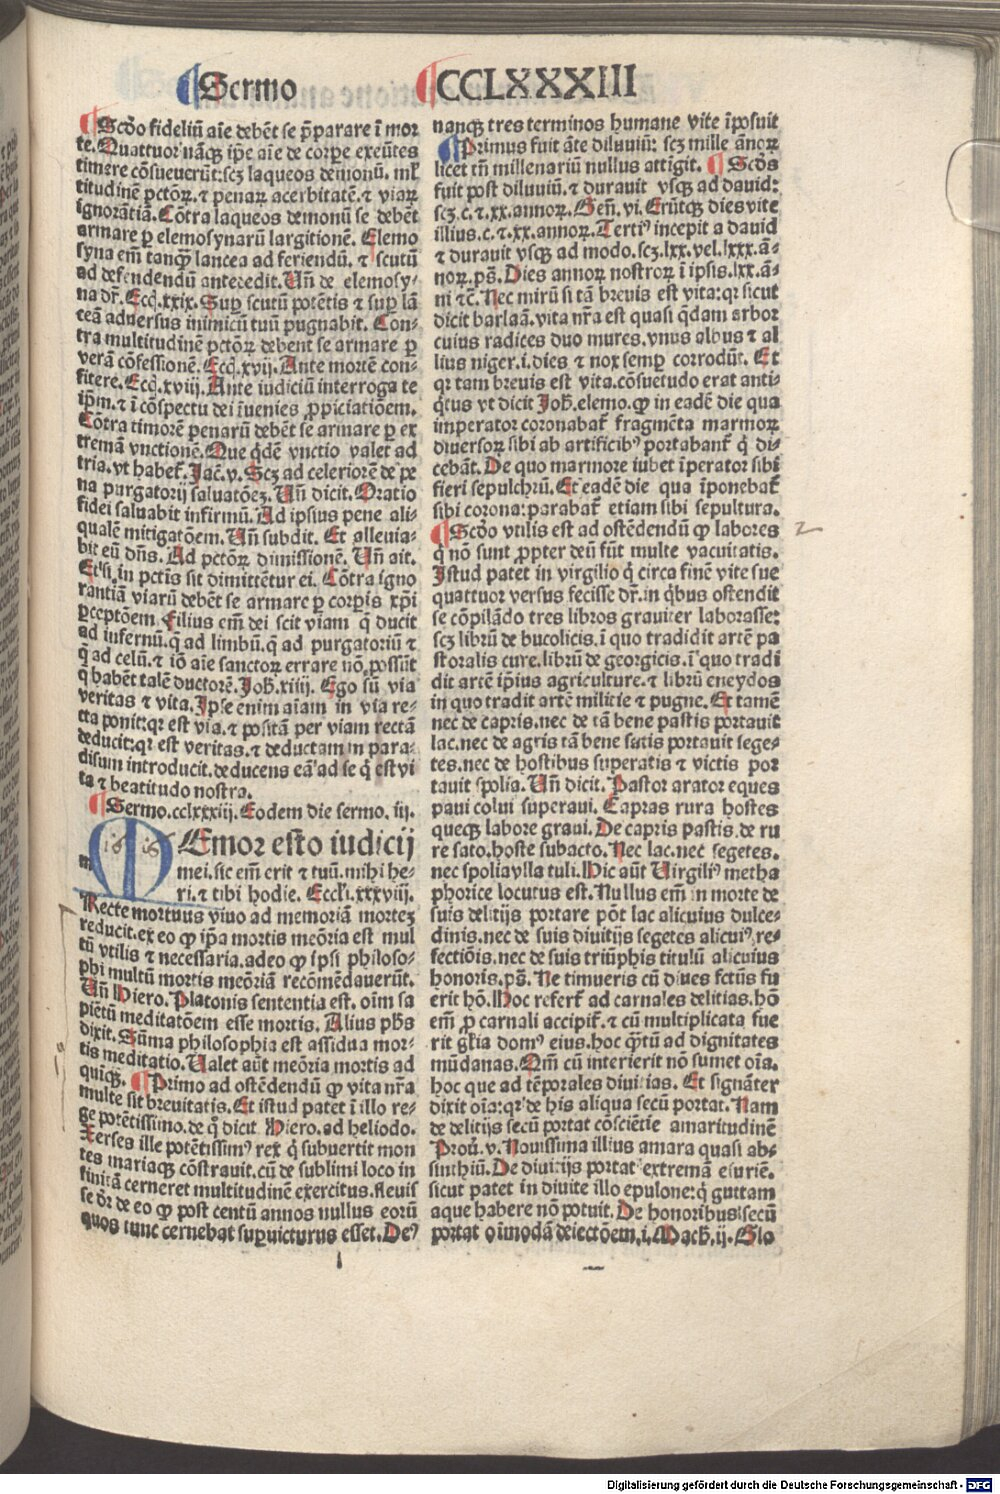 Sermo CCLXXXIII
Scd̄o fideliū aīe debēt se p̄parare ī mor
te. Quattuor nāqꝫ ip̄e aīe de corpe exeūtes
timere cōsueuerūt: scꝫ laqueos demonū. ml̕
titudinē pctōꝝ. ⁊ penaꝝ acerbitatē. ⁊ viaꝝ
ignorātiā. Cōtra laqueos demonū se debēt
armare ꝑ elemosynarū largitionē. Elemo
syna em̄ tanqꝫ lancea ad feriendū. ⁊ scutū
ad defendendū antecedit. Un̄ de elemosy-
na dr̄. Ecc̄i. xxix. Suꝑ scutū potētis ⁊ suꝑ lā
ceā aduersus inimicū tuū pugnabit. Con-
tra multitudinē pctōꝝ debent se armare ꝑ
verā cōfessionē. Ecc̄i. xvij. Ante mortē con-
fitere. Ecc̄i. xviij. Ante iudiciū interroga te
ip̄m. ⁊ ī cōspectu dei īuenies ꝓpiciatiōem.
Cōtra timorē penarū debēt se armare ꝑ ex
tremā vnctionē. Que qͥdē vnctio valet ad
tria. vt habet̕. Jac̄. v. Scꝫ ad celeriorē de pe
na purgatorij saluatōeꝫ. Un̄ dicit. Oratio
fidei saluabit infirmū. Ad ipsius pene ali-
qualē mitigatōem. Un̄ subdit. Et alleuia-
bit eū dn̄s. Ad pctōꝝ dimissionē. Un̄ ait.
Et si in pctis sit dimittētur ei. Cōtra igno
rantiā viarū debēt se armare ꝑ corpis xp̄i
ꝑceptōem. Filius em̄ dei scit viam q̄ ducit
ad infernū. q̄ ad limbū. q̄ ad purgatoriū ⁊
q̄ ad celū. ⁊ iō aīe sanctoꝝ errare nō possūt
q̄ habēt talē ductorē. Joh̄. xiiij. Ego sū via
veritas ⁊ vita. Ipse enim aīam in via re-
cta ponit: qꝛ est via. ⁊ positā per viam rectā
deducit: qꝛ est veritas. ⁊ deductam in para-
disum introducit. deducens eā ad se qͥ est vi
ta ⁊ beatitudo nostra.
Sermo. cclxxxiij. Eodem die sermo. iij.
MEmor esto iudicij
mei. sic em̄ erit ⁊ tuū. mihi he-
ri. ⁊ tibi hodie. Eccl̄i. xxxviij.
Recte mortuus viuo ad memoriā morteꝫ
reducit. ex eo ꝙ ip̄a mortis meōria est mul
tū vtilis ⁊ necessaria. adeo ꝙ ipsi philoso-
phi multū mortis meōriā recōmēdauerūt.
Un̄ Hiero. Platonis sententia est. oīm sa
piētū meditatōem esse mortis. Alius ph̄s
dixit. Sūma philosophia est assidua mor-
tis meditatio. Ualet aūt meōria mortis ad
quīqꝫ. Primo ad ostēdendū ꝙ vita nr̄a
multe sit breuitatis. Et istud patet ī illo re-
ge potētissimo. de qͦ dicit Hiero. ad heliodo.
Xerses ille potētissimꝰ rex qͥ subuertit mon
tes mariaqꝫ cōstrauit. cū de sublimi loco in
finitā cerneret multitudinē exercitus. fleuis
se dr̄ de eo ꝙ post centū annos nullus eorū
quos tunc cernebat suꝑuicturus esset. Deꝰ
nanqꝫ tres terminos humane vite īposuit
Primus fuit āte diluuiū: scꝫ mille ānoꝝ
licet tn̄ millenariū nullus attīgit. Scd̄s
fuit post diluuiū. ⁊ durauit vsqꝫ ad dauid:
scꝫ. c. ⁊. xx. annoꝝ. Gen̄. vi. Erūtqꝫ dies vite
illius. c. ⁊. xx. annoꝝ. Tertiꝰ incepit a dauid
⁊ durauit vsqꝫ ad modo. scꝫ. lxx. vel. lxxx. ā-
noꝝ. ps̄. Dies annoꝝ nostroꝝ ī ipsis. lxx. ā-
ni ⁊c̄. Nec mirū si tā breuis est vita: qꝛ sicut
dicit barlaā. vita nr̄a est quasi qͥdam arbor
cuius radices duo mures. vnus albus ⁊ al
lius niger. i. dies ⁊ nox semꝑ corrodūt. Et
qꝛ tam breuis est vita. cōsuetudo erat anti-
qͥtus vt dicit Joh̄. elemo. ꝙ in eadē die qua
imperator coronabat̕ fragmēta marmoꝝ
diuersoꝝ sibi ab artificibꝰ portabant̕ qͥ di-
cebāt. De quo marmore iubet īperator sibi
fieri sepulchrū. Et eadē die qua īponebat̕
sibi corona: parabat̕ etiam sibi sepultura.
Scd̄o vtilis est ad ostēdendū ꝙ labores
qͥ nō sunt ꝓpter deū sūt multe vacuitatis.
Istud patet in virgilio qͥ circa finē vite sue
quattuor versus fecisse dr̄. in qͥbus ostendit
se cōpilādo tres libros grauiter laborasse:
scꝫ librū de bucolicis. ī quo tradidit artē pa
storalis cure. librū de georgicis. ī quo tradi
dit artē ip̄ius agriculture. ⁊ librū eneydos
in quo tradit artē militie ⁊ pugne. Et tamē
nec de capris. nec de tā bene pastis portauit
lac. nec de agris tā bene satis portauit sege-
tes. nec de hostibus superatis ⁊ victis por
tauit spolia. Un̄ dicit. Pastor arator eques
paui colui superaui. Capras rura hostes
queqꝫ labore graui. De capris pastis. de ru
re sato. hoste subacto. Nec lac. nec segetes.
nec spolia vlla tuli. Hic aūt Uirgiliꝰ metha
phorice locutus est. Nullus em̄ in morte de
suis delitijs portare pōt lac alicuius dulce-
dinis. nec de suis diuitijs segetes alicuiꝰ re-
fectiōis. nec de suis triūphis titulū alicuius
honoris. ps̄. Ne timueris cū diues fctūs fu
erit hō. Hoc refert̕ ad carnales delitias. hō
em̄ ꝓ carnali accipit̕. ⁊ cū multiplicata fue
rit gl̄ia domꝰ eius. hoc qͣtū ad dignitates
mūdanas. Qm̄ cū interierit nō sumet oīa.
hoc que ad tēporales diuitias. Et signāter
dixit oīa: qꝛ de his aliqua secū portat. Nam
de delitijs secū portat cōsciētie amaritudinē
Prou̕. v. Nouissima illius amara quasi ab-
sinthiū. De diuitijs portat extremā esuriē.
sicut patet in diuite illo epulone: qͥ guttam
aque habere nō potuit. De honoribus secū
portat oīmodā deiectōem. i. Mach̄. ij. Glo
Digitalisierung gefördert durch die Deutsche Forschungsgemeinschaft - DFG